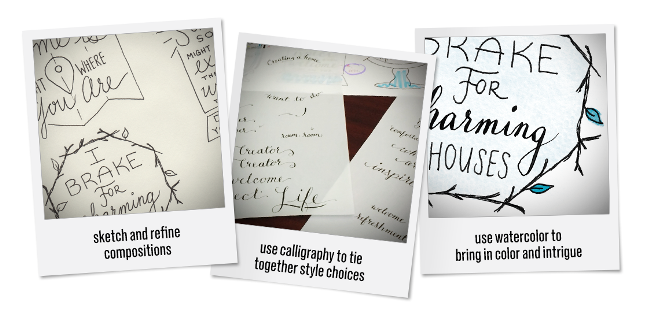 WHERE
you are
MIGHT
I
BRAKE
FOR
charming
sketch and refine
compositions
Creating a home
want to
room room
Creator
Creator
welcome
Life
inspire
welcome
refreshment
use calligraphy to tie
together style choices
BRAKE
FOR
harming
HOUSES
use watercolor to
bring in color and intrigue